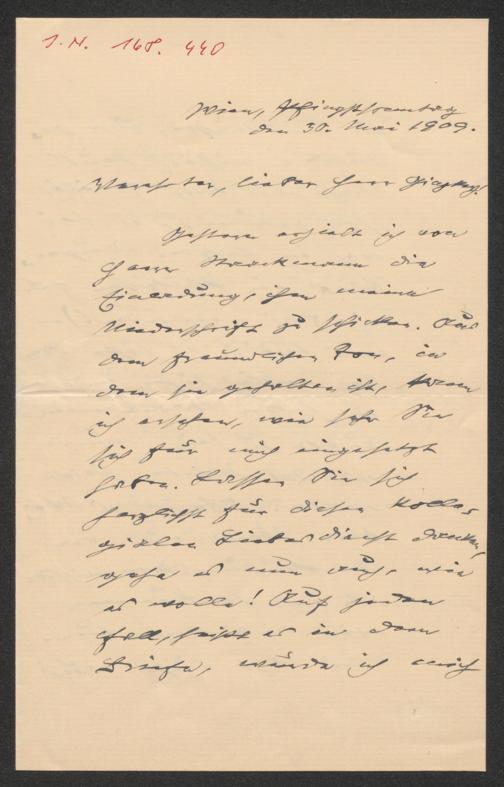 J.N. 168.440
Wien, Pfingstsonntag
den 30. Mai 1909.
Verehrter, lieber Herr
Gestern erhielt ich von
Herrn Strackmann die
Einladung, ihm meine
Niederschrift zu schicken. Aus
dem freundlichen Ton, in
dem sie gehalten ist, kann
ich ersehen, wie sehr Sie
sich für mich eingesetzt
haben. Lassen Sie sich
herzlichst für diesen kolle-
gialen Liebesdienst danken,
gehe es nun auch, wie
es wolle! Auf jeden
Fall, heißt es in dem
Briefe, würde ich mich